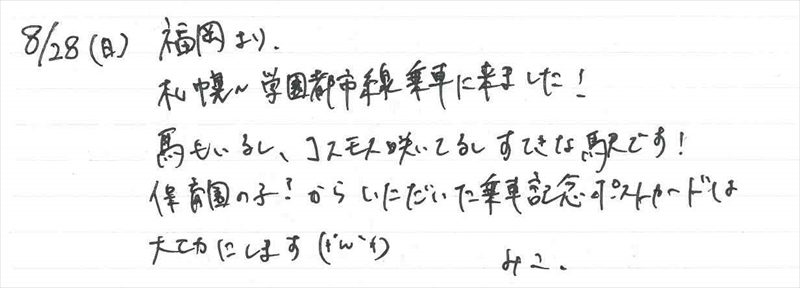 8/28(日) 福岡より.
札幌~学園都市線乗車に来ました!
馬もいるし、コスモス咲いてるしすてきな駅です!
保育園の子?からいただいた乗車記念ポストカードは
大切にします
みこ.